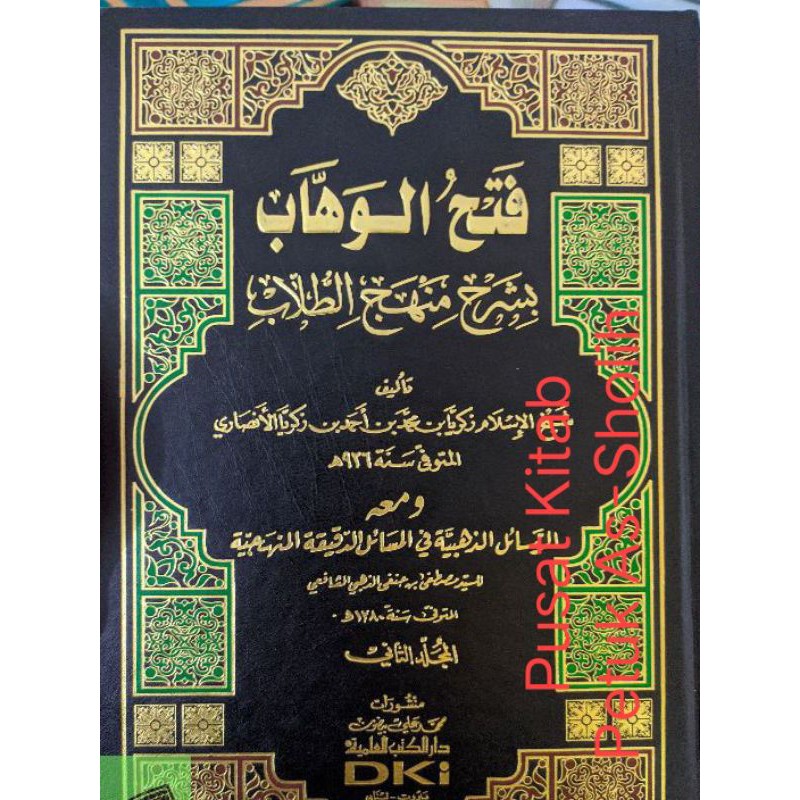 فَتحُ الوَهَّاب
بِشَرح مَنهَج الطُّلَّابِ
تأليف
شيخ الإسلام زكريّا بن محمّد بن أحمد بن زكريّا الأنصاري
المتوفى سَنة ٩٢٦هـ
ومعه
الرسائل الذهبيّة في المسائل الدقيقة المنهجيّة
للسيد مصطفى بن حنفي الذهبي الشافعي
المتوفى سنة ١٢٨٠هـ
المجلّد الثاني
منشورات
محمد علي بيضون
دار الكتب العلمية
DKi
بيروت - لبنان
Pusat Kitab
Petuk As-Sholih